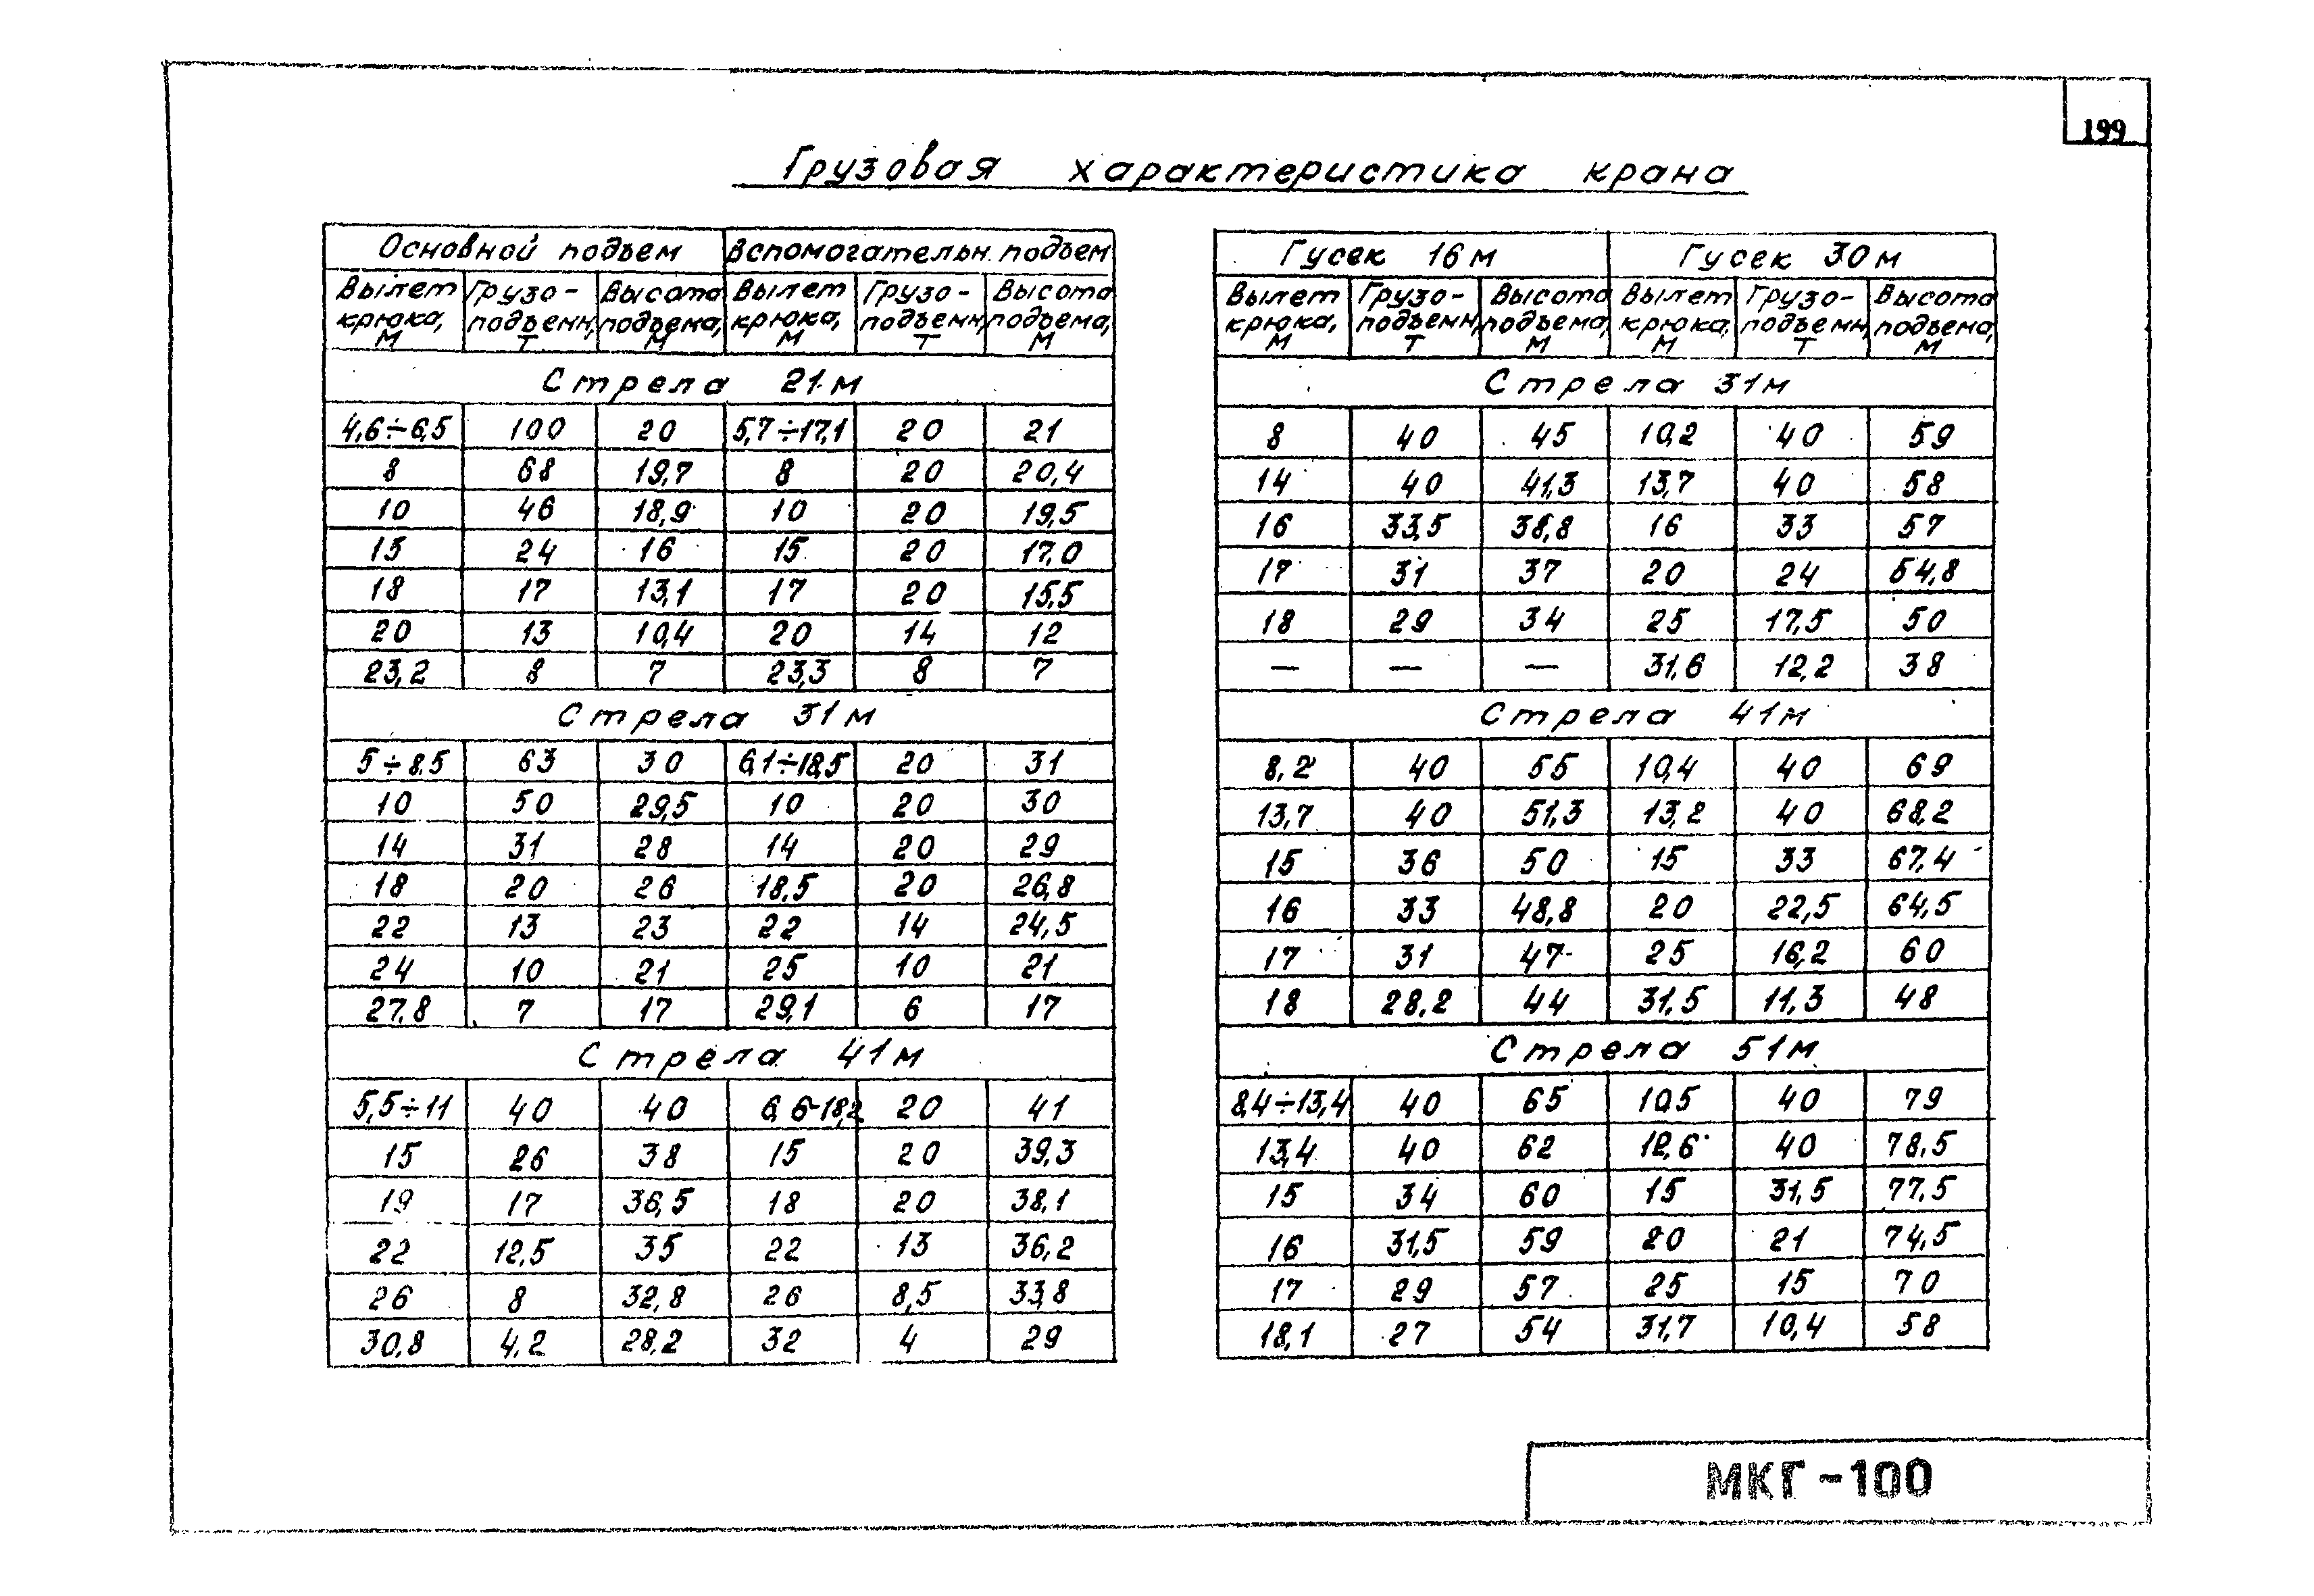 199
Грузовая характеристика крана
Основной подъем Вспомогательн. подъем
Вылет крюка, м Грузо-подъемн, т Высота подъема, м Вылет крюка, м Грузо-подъемн, т Высота подъема, м
Стрела 21 м
4,6÷6,5 100 20 5,7÷17,1 20 21
8 68 19,7 8 20 20,4
10 46 18,9 10 20 19,5
15 24 16 15 20 17,0
18 17 13,1 17 20 15,5
20 13 10,4 20 14 12
23,2 8 7 23,3 8 7
Стрела 31 м
5÷8,5 63 30 6,1÷18,5 20 31
10 50 29,5 10 20 30
14 31 28 14 20 29
18 20 26 18,5 20 26,8
22 13 23 22 14 24,5
24 10 21 25 10 21
27,8 7 17 29,1 6 17
Стрела 41 м
5,5÷11 40 40 6,6-18,2 20 41
15 26 38 15 20 39,3
19 17 36,5 18 20 38,1
22 12,5 35 22 13 36,2
26 8 32,8 26 8,5 33,8
30,8 4,2 28,2 32 4 29
Гусек 16 м Гусек 30 м
Вылет крюка, м Грузо-подъемн, т Высота подъема, м Вылет крюка, м Грузо-подъемн, т Высота подъема, м
Стрела 31 м
8 40 45 10,2 40 59
14 40 41,3 13,7 40 58
16 33,5 38,8 16 33 57
17 31 37 20 24 54,8
18 29 34 25 17,5 50
— — — 31,6 12,2 38
Стрела 41 м
8,2 40 55 10,4 40 69
13,7 40 51,3 13,2 40 68,2
15 36 50 15 33 67,4
16 33 48,8 20 22,5 64,5
17 31 47 25 16,2 60
18 28,2 44 31,5 11,3 48
Стрела 51 м
8,4÷13,4 40 65 10,5 40 79
13,4 40 62 12,6 40 78,5
15 34 60 15 31,5 77,5
16 31,5 59 20 21 74,5
17 29 57 25 15 70
18,1 27 54 31,7 10,4 58
МКГ-100